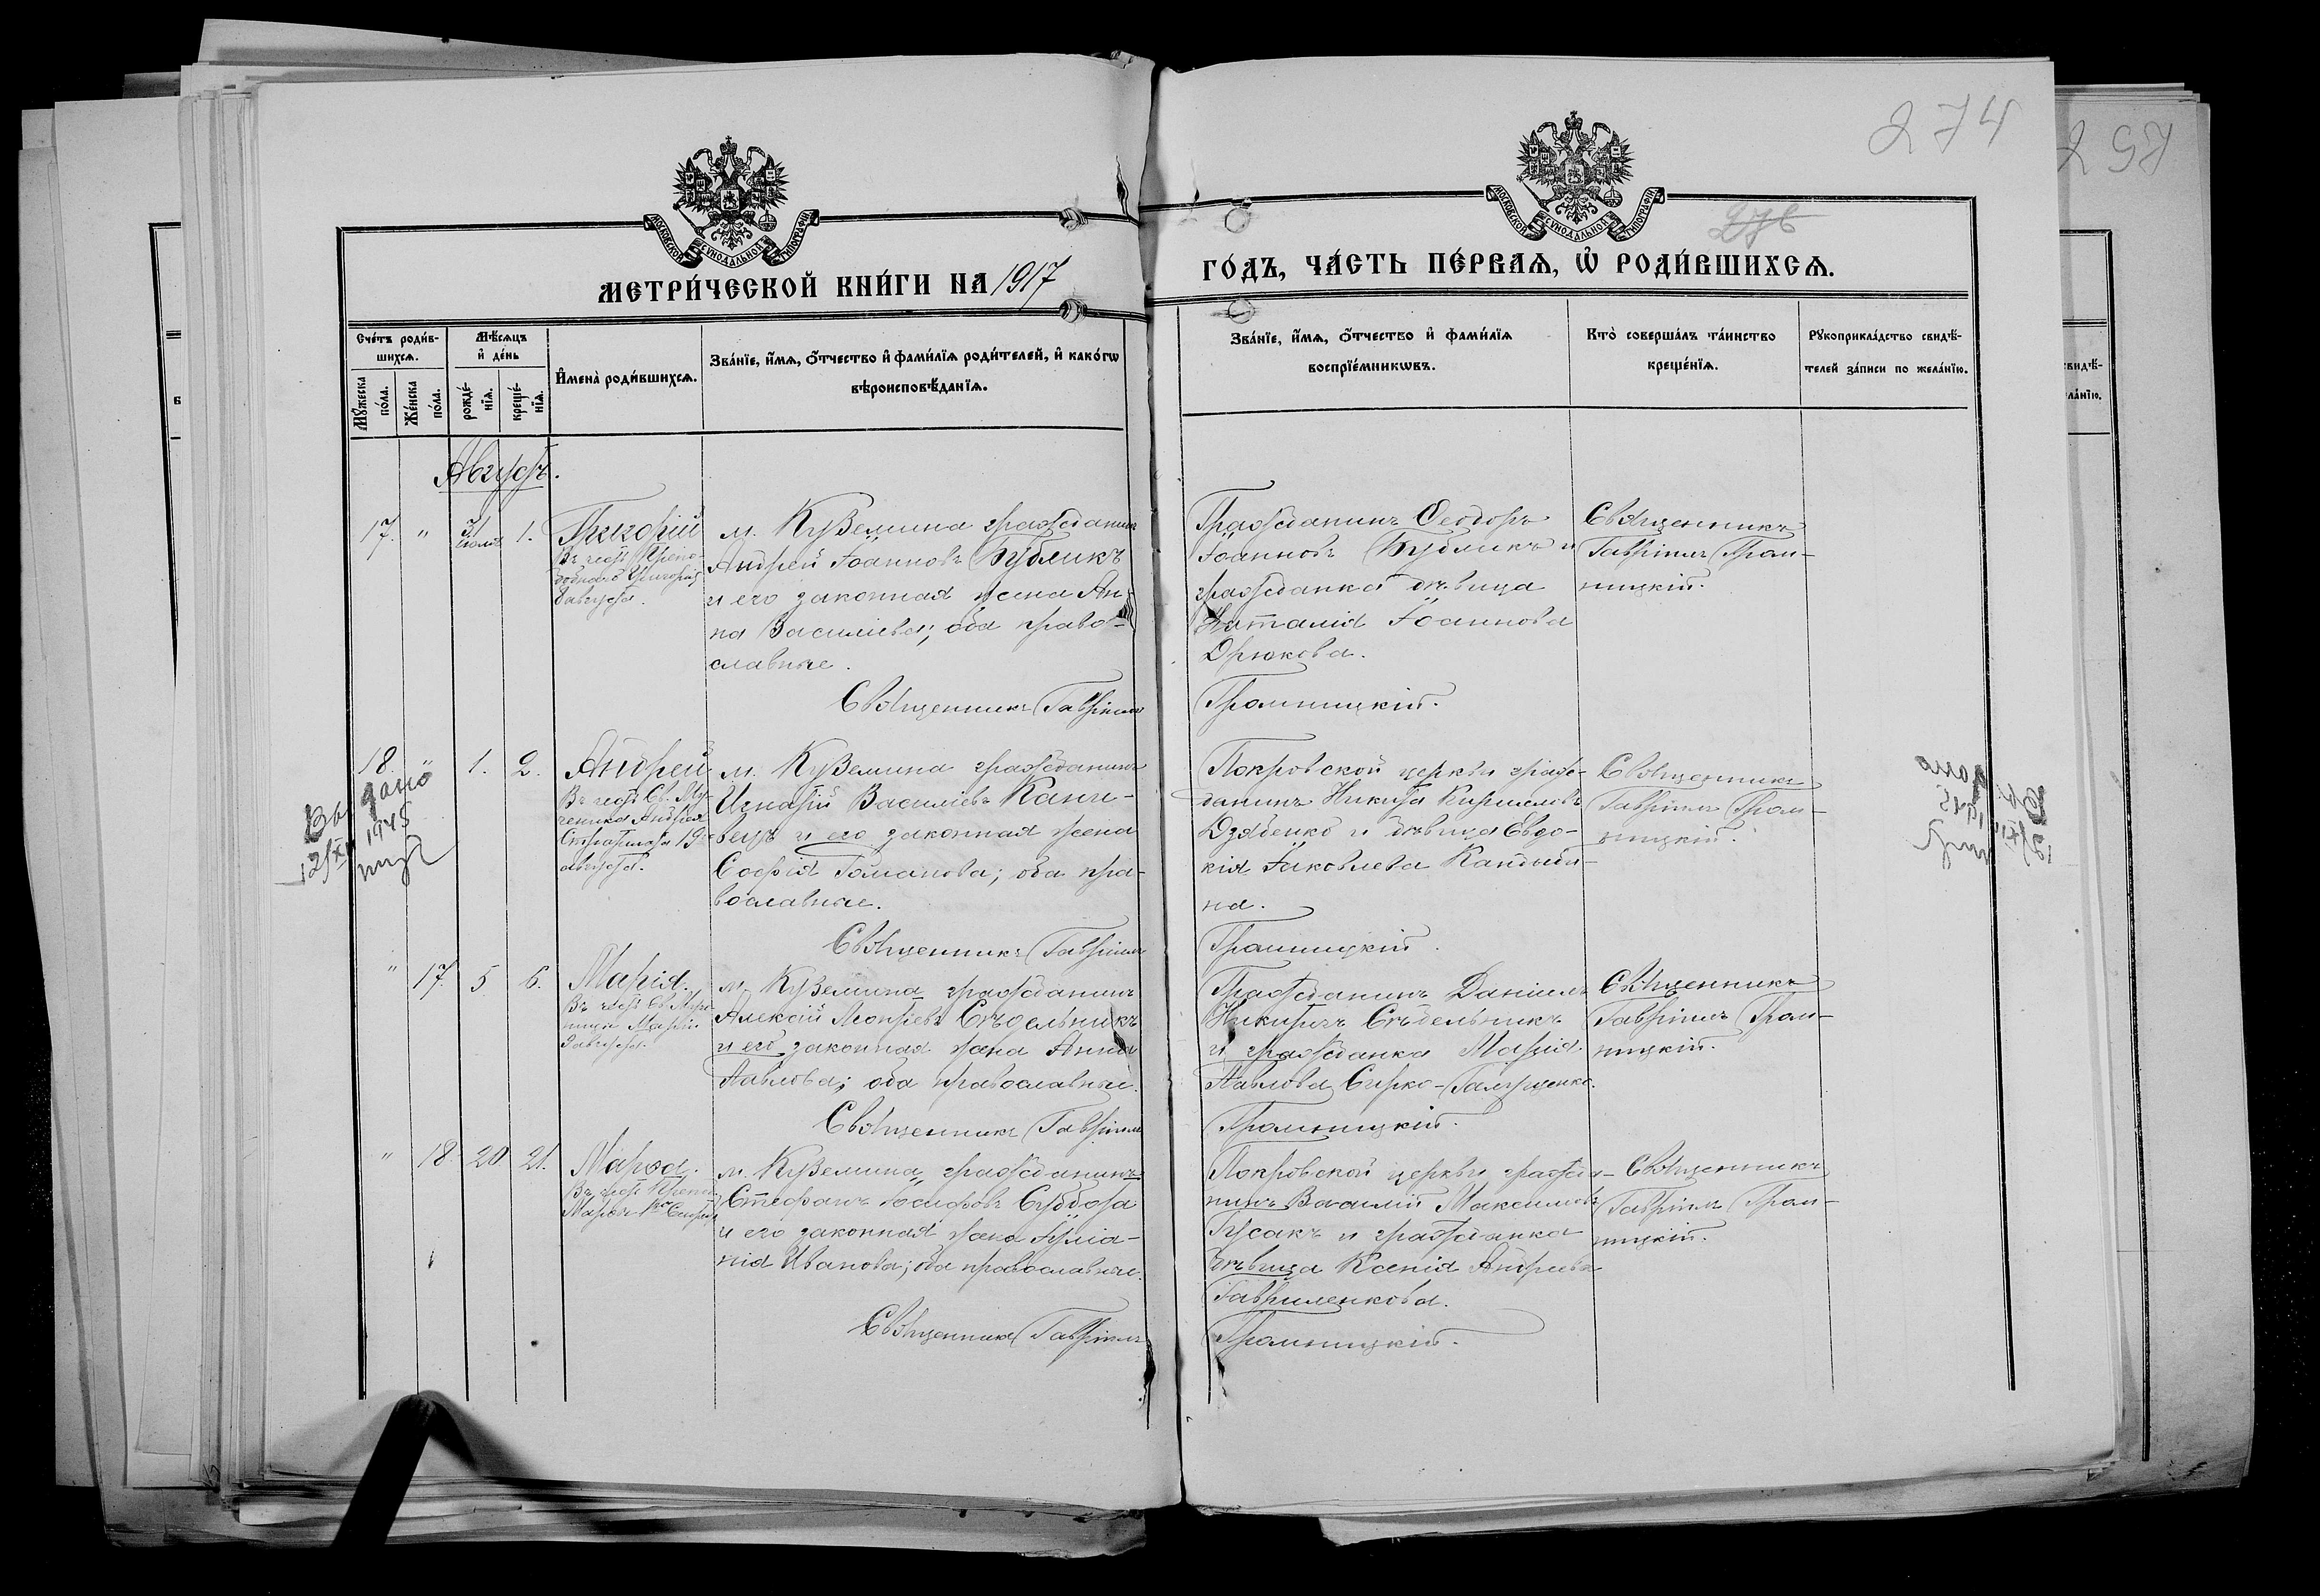 274
297
276
МОСКОВСКОЙ СУНОДАЛЬНОЙ ТИПОГРАФІИ
МОСКОВСКОЙ СУНОДАЛЬНОЙ ТИПОГРАФІИ
МЕТРИ́ЧЕСКОЙ КНИ́ГИ НА 1917
ГО́ДЪ, ЧА́СТЬ ПЕ́РВАѦ, Ѽ РОДИ́ВШИХСѦ.
Сче́тъ роди́в-
шихсѧ.
Мꙋ́жеска
по́ла.
Же́нска
по́ла.
Мѣ́сѧцъ
и҆ де́нь
рожде́-
нїѧ.
креще́-
нїѧ.
И҆мена̀ роди́вшихсѧ.
Зва́нїе, и҆́мѧ, ѻ҆́тчество и҆ фами́лїѧ роди́телей, и҆ како́гѡ
вѣроисповѣ́данїѧ.
Зва́нїе, и҆́мѧ, ѻ҆́тчество и҆ фами́лїѧ
воспрїе́мникѡвъ.
Кто̀ соверша́лъ та́инство
креще́нїѧ.
Рꙋкоприкла́дство свидѣ́-
телей за́писи по жела́нїю.
Августъ.
17. " 31 іюля 1. Григорій
Въ честь Препо-
добнаго Григорія
8 августа.
м. Куземина гражданинъ
Андрей Іоанновъ Бубликъ
и его законная жена Ан-
на Василіева; оба право-
славные.
Священникъ Гавріилъ
Гражданинъ Ѳеодоръ
Іоанновъ Бубликъ и
гражданка дѣвица
Наталія Іоаннова
Дрюкова.
Громницкій.
Священникъ
Гавріилъ Гром-
ницкій.
18. " 1. 2. Андрей
Въ честь Св. Му-
ченика Андрея
Стратилата 19
августа.
дано
1945
12/XI
м. Куземина гражданинъ
Игнатій Василіевъ Кани-
вецъ и его законная жена
Софія Романова; оба пра-
вославные.
Священникъ Гавріилъ
Покровской церкви граж-
данинъ Никита Кирилловъ
Дзябенко и дѣвица Евдо-
кія Іаковлева Кандыби-
на.
Громницкій.
Священникъ
Гавріилъ Гром-
ницкій.
" 17. 5 6. Марія.
Въ честь Св. Муро-
ницы Маріи
августа.
м. Куземина гражданинъ
Алексій Леонтіевъ Сѣдельникъ
и его законная жена Анна
Павлова; оба православные.
Священникъ Гавріилъ
Гражданинъ Даніилъ
Никитичъ Сѣдельникъ
и гражданка Марія
Павлова Сирко-Галущенко.
Громницкій.
Священникъ
Гавріилъ Гром-
ницкій.
" 18. 20 21. Марѳа.
Въ честь Препод.
Марѳы 1го Сентяб.
м. Куземина гражданинъ
Стефанъ Іосифовъ Суббота
и его законная жена Іуліа-
нія Иванова; оба православные.
Священникъ Гавріилъ
Покровской церкви гражда-
нинъ Василій Максимовъ
Гусакъ и гражданка
дѣвица Ксенія Андреева
Гавриленкова.
Громницкій.
Священникъ
Гавріилъ Гром-
ницкій.